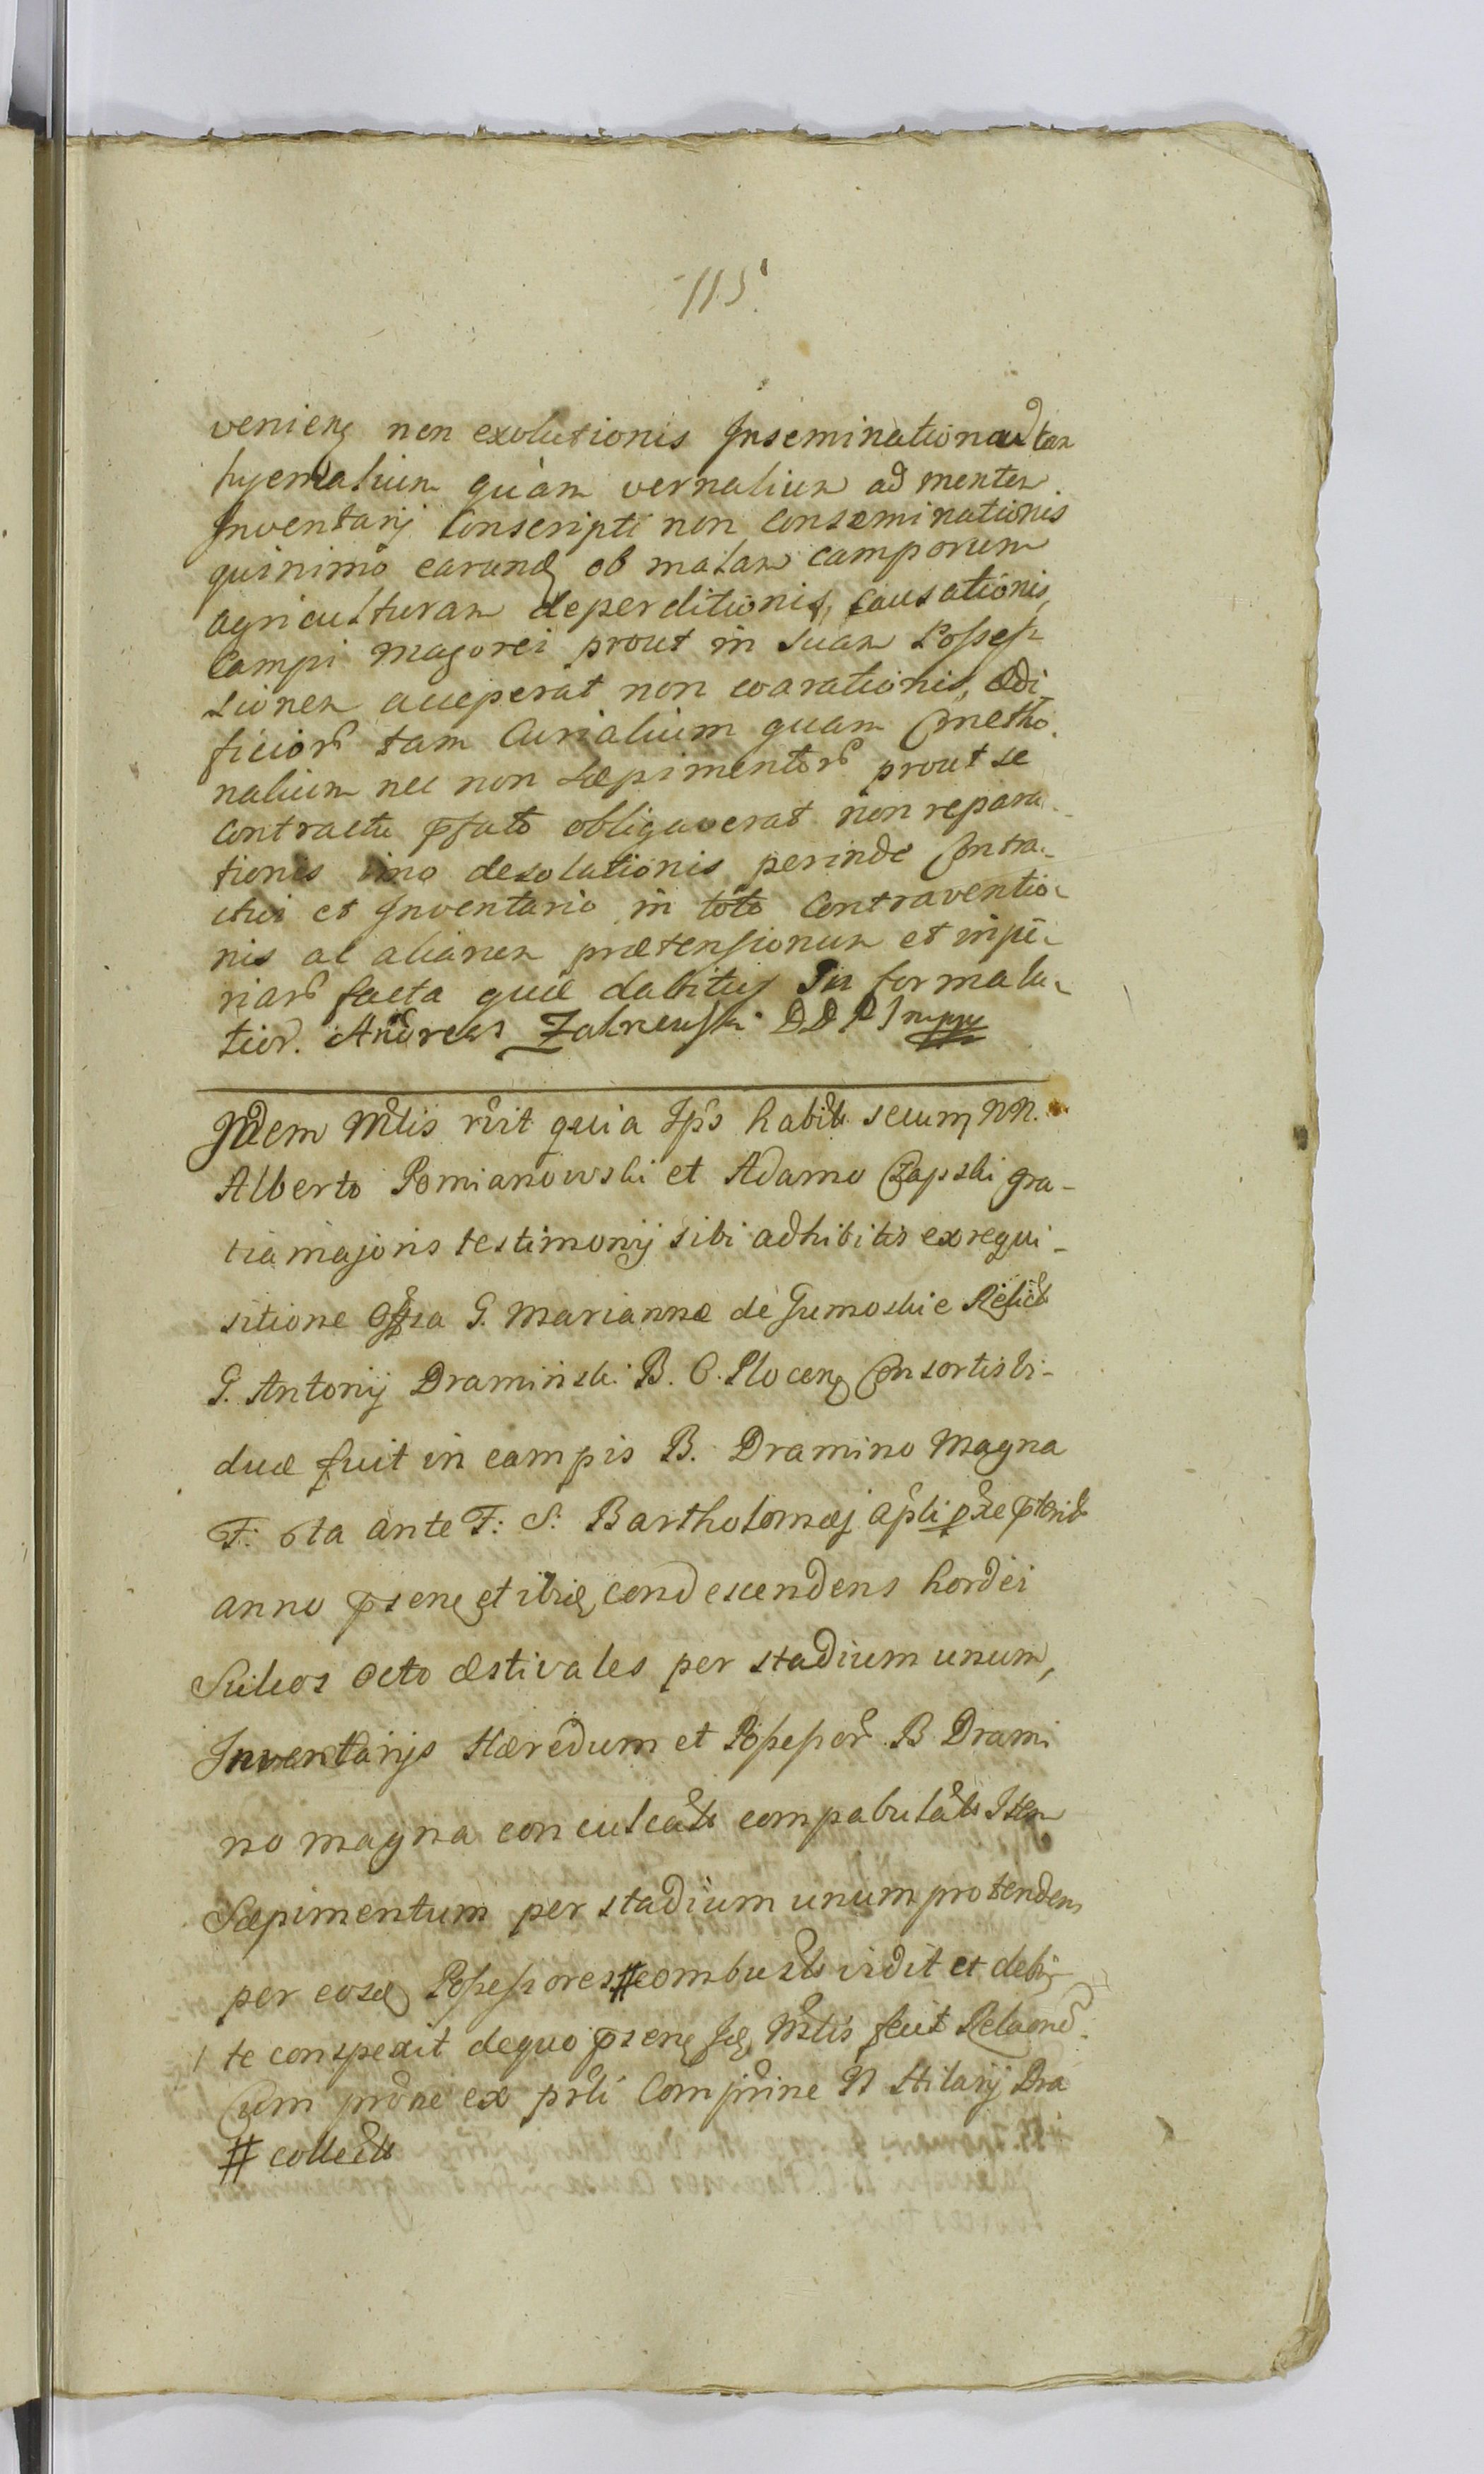 115.
venienȝ non exolutionis Inseminationũ tam
hyemalium quàm vernalium ad mentem
Inventarij Conscripti non Conseminationis
quinimò earundȝ ob malam camporum
agriculturam deperditionis, Causationis,
Campi magorei prout in suam Posses-
sionem acceperat non coarationis, Ædi-
ficiorũ tam Curialium quam Cmetho-
nalium nec non sæpimentorũ prout se
Contractu pfato obligaverat non repara-
tionis imo desolationis perinde Contra-
ctui et Inventario in toto Contraventio-
nis ac aliarum prætensionum et injũ-
riarũ facta quæ dabitur In forma la-
tiori. Andreas Zalneuski DDPJ mppr
Idem Mlis rvit quia Ips habit secum NN.
Alberto Pomianowski et Adamo Czapski gra-
tia majoris testimonij sibi adhibitis ex requi-
sitione G. Mariannæ de Gumoskie Relict
G. Antonij Draminski B. C. Plocenȝ Consortis vi-
duæ fuit in campis B. Dramino Magna
F: 6ta ante F: S: Bartholomæj Apli pxe pterit
anno psenȝ et ibidȝ condescendens hordei
Sulcos octo æstivales per stadium unum,
Inventarijs Hæredum et Possessorũ B Drami
no magna conculcats compabulats Item
Sæpimentum per stadium unum protendens
per eosdȝ Possessores # combusts vidit et debi-
te conspexit de quo psenȝ Idȝ Mlis fecit Relaonẽ.
Cum prone ex prli Comprine N Hilarij Dra
# collects